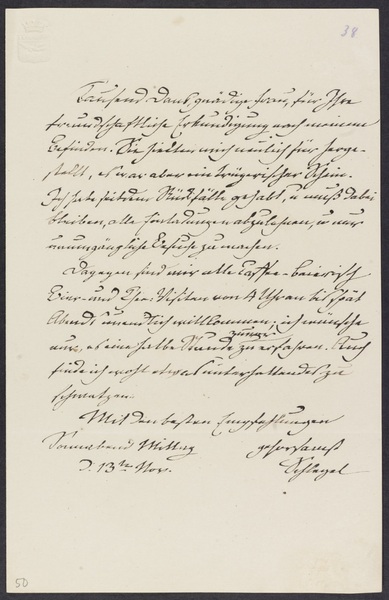 38
Tausend Dank, gnädige Frau, für Ihre
freundschaftliche Erkundigung nach meinem
Befinden. Sie hielten mich neulich für herge-
stellt, es war aber ein trügerischer Schein.
Ich habe seitdem Rückfälle gehabt, u muß dabei
bleiben, alle Einladungen abzulehnen, u nur
unumgängliche Besuche zu machen.
Dagegen sind mir alle Caffee-baierisch
Bier- und Thee-Visiten von 4 Uhr an bis spät
Abends unendlich willkommen; ich wünsche
nur, es eine halbe Stunde zuvor zu erfahren. Auch
finde ich wohl etwas unterhaltendes zu
schwatzen.
Mit den besten Empfehlungen
Sonnabend Mittag gehorsamst
d. 13ten Nov. Schlegel
50